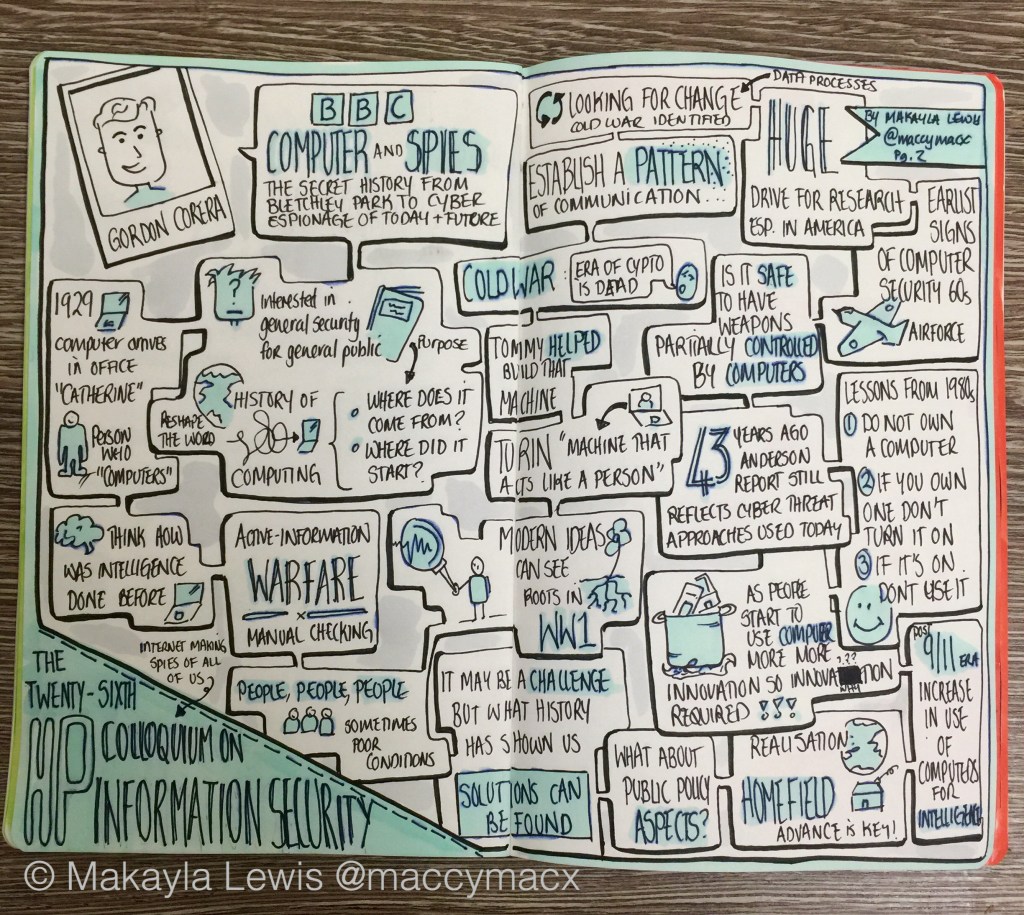 GORDON CORERA
BBC
COMPUTER AND SPIES
THE SECRET HISTORY FROM
BLETCHLEY PARK TO CYBER
ESPIONAGE OF TODAY + FUTURE
?
Interested in
general security
for general public
Purpose
RESHAPE
THE WORD
HISTORY OF
COMPUTING
WHERE DOES IT
COME FROM?
WHERE DID IT
START?
1929
COMPUTER ARRIVES
IN OFFICE
"CATHERINE"
PERSON
WHO
"COMPUTERS"
THINK HOW
WAS INTELLIGENCE
DONE BEFORE
ACTIVE-INFORMATION
WARFARE
x
MANUAL CHECKING
INTERNET MAKING
SPIES OF ALL
OF US
PEOPLE, PEOPLE, PEOPLE
SOMETIMES
POOR
CONDITIONS
THE
TWENTY-SIXTH
HP COLLOQUIUM ON
INFORMATION SECURITY
LOOKING FOR CHANGE
COLD WAR IDENTIFIED
DATA PROCESSES
ESTABLISH A PATTERN
OF COMMUNICATION...
HUGE
DRIVE FOR RESEARCH
ESP. IN AMERICA
BY MAKAYLA LEWIS
@maccymacx
Pg. 2
EARLIST
SIGNS
OF COMPUTER
SECURITY 60s
AIRFORCE
COLD WAR :
ERA OF CYPTO
IS DEAD
TOMMY HELPED
BUILD THAT
MACHINE
TURIN "MACHINE THAT
ACTS LIKE A PERSON"
IS IT SAFE
TO HAVE
WEAPONS
PARTIALLY CONTROLLED
BY COMPUTERS
43 YEARS AGO
ANDERSON
REPORT STILL
REFLECTS CYBER THREAT
APPROACHES USED TODAY
LESSONS FROM 1980s
1 DO NOT OWN
A COMPUTER
2 IF YOU OWN
ONE DON'T
TURN IT ON
3 IF IT'S ON
DONT USE IT
MODERN IDEAS
CAN SEE
ROOTS IN
WW1
IT MAY BE A CHALLENGE
BUT WHAT HISTORY
HAS SHOWN US
SOLUTIONS CAN
BE FOUND
AS PEOPLE
START TO
USE COMPUTER
MORE MORE
INNOVATION SO INNOVATION
REQUIRED !!!
WHAT ABOUT
PUBLIC POLICY
ASPECTS?
REALISATION:
HOMEFIELD
ADVANCE IS KEY!
POST
9/11 ERA
INCREASE
IN USE
OF
COMPUTERS
FOR
INTELLIGENCE
© Makayla Lewis @maccymacx